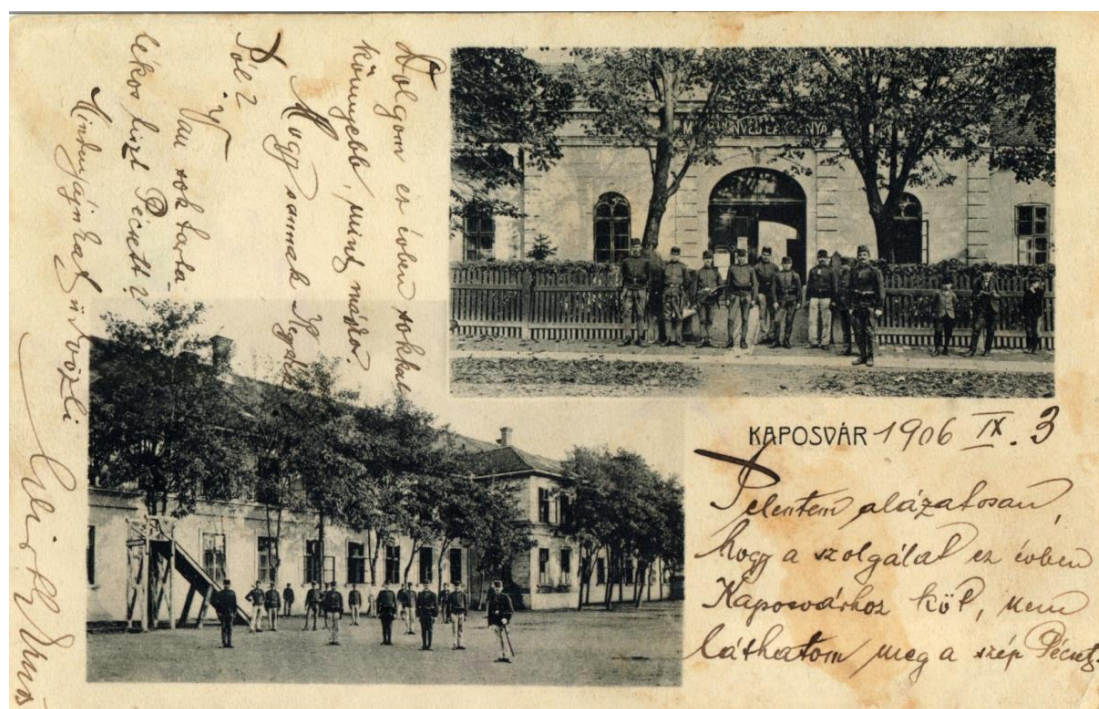 KAPOSVÁR 1906 IX. 3
Jelentem alázatosan,
hogy a szolgálat ez évben
Kaposvárhoz köt, nem
láthatom meg a szép Pécset.
Dolgom ez évben sokkal
könnyebb, mint máskor.
Hogy vannak
Van sok tartalé
kos tiszt Pécsett?
Mindnyájukat üdvözli